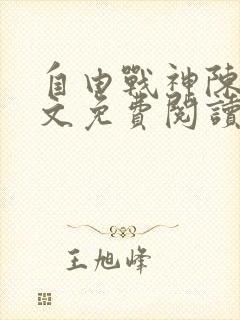 自由戰神陳
文免費閱讀
王旭峰